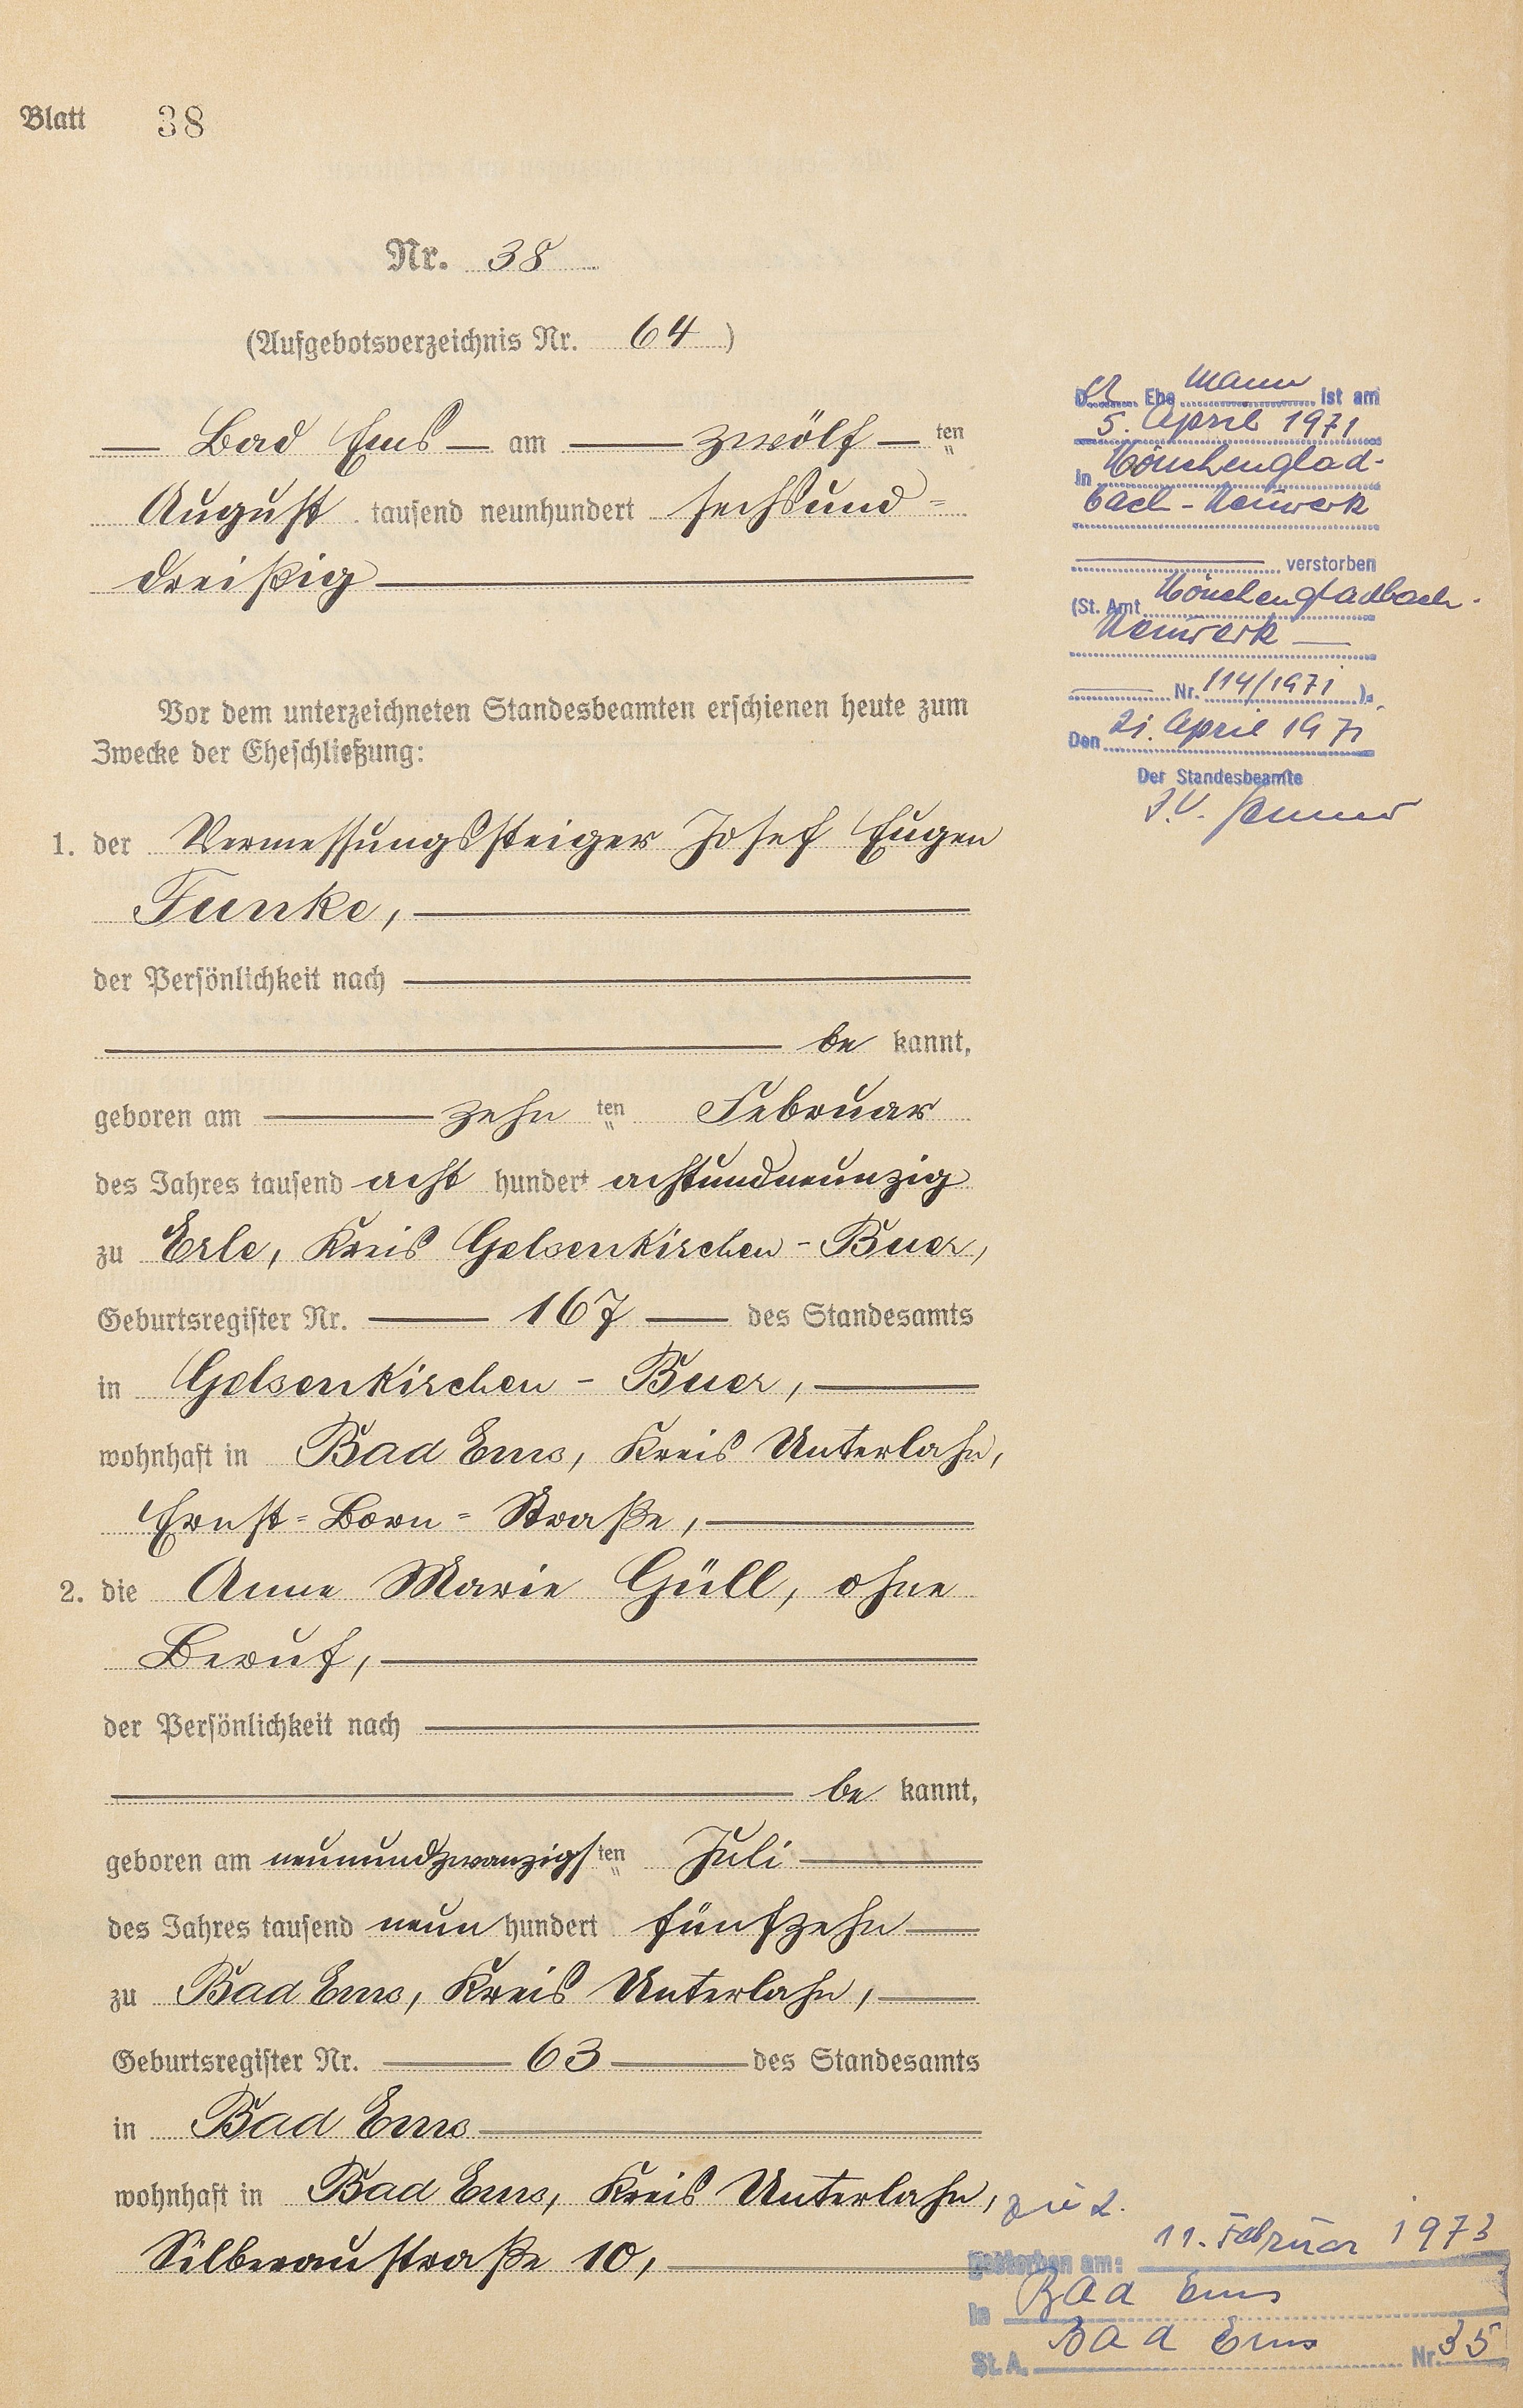 Blatt 38
Nr. 38
(Aufgebotsverzeichnis Nr. 64)
— Bad Ems — am — zwölf — ten
August tausend neunhundert sechsund=
dreißig —
Vor dem unterzeichneten Standesbeamten erschienen heute zum
Zwecke der Eheschließung:
1. der Vermessungssteiger Josef Eugen
Funke, —
der Persönlichkeit nach —
— be kannt,
geboren am — zehn ten Februar
des Jahres tausend acht hundert achtundneunzig
zu Erle, Kreis Gelsenkirchen - Buer,
Geburtsregister Nr. — 167 — des Standesamts
in Gelsenkirchen - Buer, —
wohnhaft in Bad Ems, Kreis Unterlahn,
Ernst=Born=Straße, —
2. die Anna Marie Güll, ohne
Beruf, —
der Persönlichkeit nach —
— be kannt,
geboren am neunundzwanzigsten Juli —
des Jahres tausend neun hundert fünfzehn —
zu Bad Ems, Kreis Unterlahn, —
Geburtsregister Nr. — 63 — des Standesamts
in Bad Ems —
wohnhaft in Bad Ems, Kreis Unterlahn,
Silberaustraße 10, —
Der Ehe mann ist am
5. April 1971
in Mönchenglad-
bach - Neuwerk
— verstorben
(St. Amt Mönchengladbach-
Neuwerk —
— Nr. 114/1971 ).
Den 21. April 1971
Der Standesbeamte
I.V.
zu 2.
gestorben am: 11. Februar 1973
in Bad Ems
St.A. Bad Ems Nr. 35